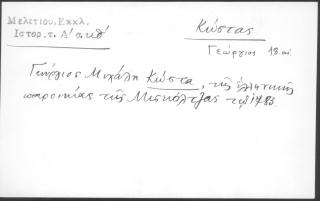 Μελετίου, Εκκλ.
Ιστορ. τ. Α' σ. κθ'
Κώστας
Γεώργιος 18 αἰ.
Γεώργιος Μιχάλη Κώστα, τῆς ἑλληνικῆς
παροικίας τῆς Μισκόλτζας τῷ 1783